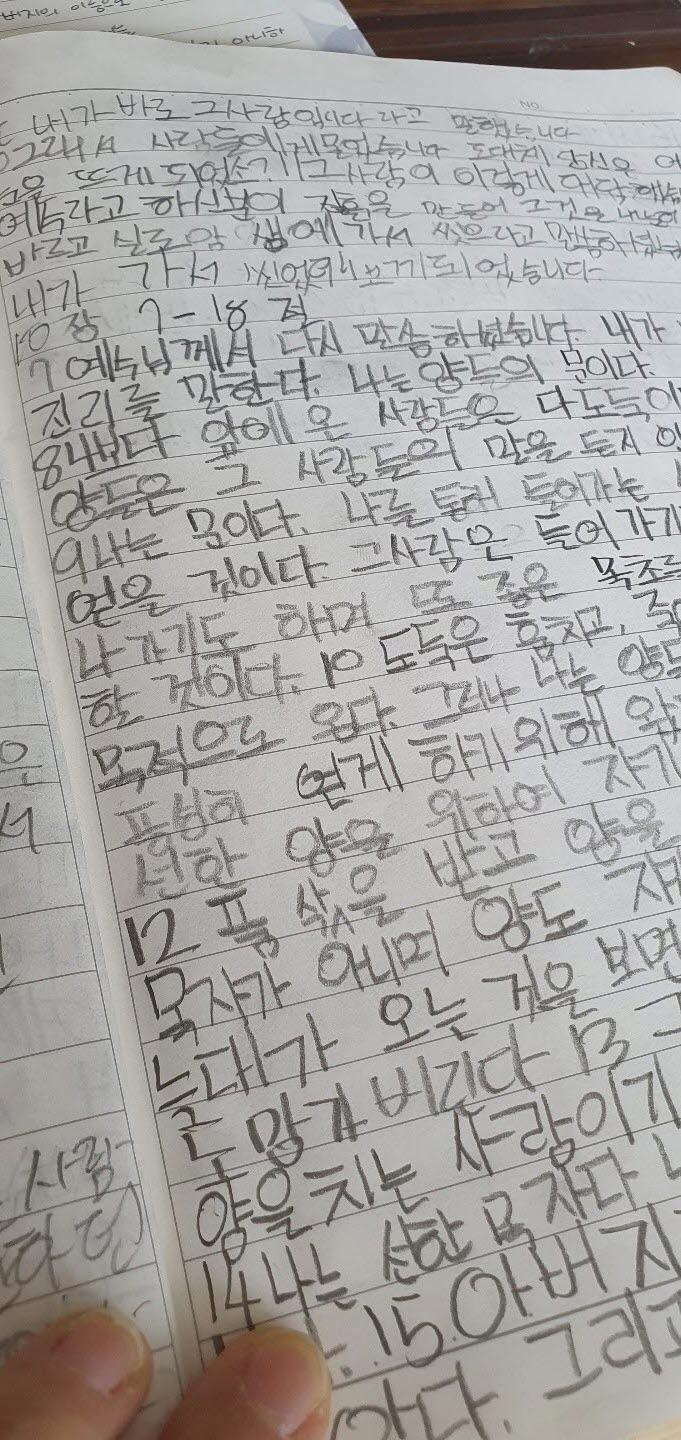 내가 바로 그사람입니다 라고 말했습니다
그래서 사람들에게물었습니다 도대체 당신은 어
눈을 뜨게 되었소? 그 사람이 이렇게 대답
예수라고 하신분이 진흙을 만들어 그것을 내눈에
바르고 실로암 샘에가서 씻으라고 말씀하셨습
내가 가서 씻었더니 보기되었습니다
10장 7-18절
7 예수님께서 다시 말씀하셨습니다. 내가
진리를 말한다. 나는양들의 문이다.
8내보다 앞에 온 사람들은 다도둑이
양들은 그 사람들의 말을 듣지
9나는 문이다. 나를 통해 들어가는
얻을 것이다. 그사람은 들어가기
나가기도 하며 또 좋은 목초를
할 것이다. 10 도둑은 훔치고,
목적으로 온다. 그러나 나는 양들
풍성히 얻게 하기위해 왔
선한 양을 위하여 자기
12 품삯을 받고 양을
목자가 아니며 양도
늑대가 오는 것을 보면
도망가 버린다 13 그
양을치는 사람이기
14나는 선한 목자다
15.아버지
아다. 그리고
사람